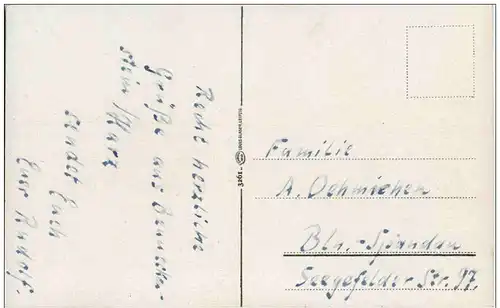 Recht herzliche
Grüße aus Braunlage-
stein/Harz
sendet Euch
Euer Rudolf.
3261
Familie
A. Oehmichen
Bln.-Spandau
Seegefelder Str. 97.